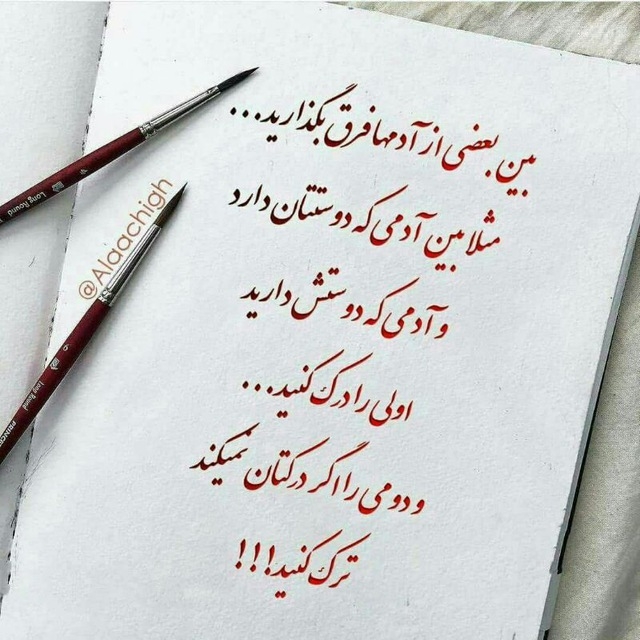 بین بعضی از آدمها فرق بگذارید...
مثلا بین آدمی که دوستتان دارد
و آدمی که دوستش دارید
اولی را درک کنید...
و دومی را اگر درکتان نمیکند
ترک کنید!!!
@Alaachigh
Long Round
6
Long Round
6
PRINCE